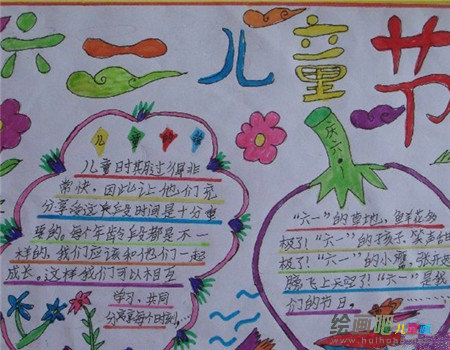 六一儿童节
儿童时期过得非
常快，因此让他们充
分享受这段时间是十分重
要的，每个年龄段都是不一
样的，我们应该和他们一起
成长，这样我们可以相互
学习，共同
分享每个时刻……
庆六一
"六一"的草地，鲜花多
极了！"六一"的孩子，笑声甜
极了！"六一"的小鹰，张开翅
腾飞上天空了！"六一"是我
们的节日。……
绘画吧
儿童画